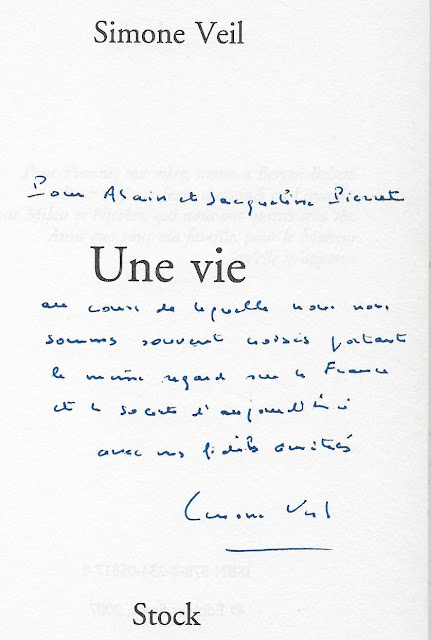 Simone Veil
Pour Alain et Jacqueline Pierret
Une vie
au cours de laquelle nous nous
sommes souvent croisés portant
le même regard sur la France
et la société d'aujourd'hui
avec nos fidèles amitiés
Simone Veil
Stock